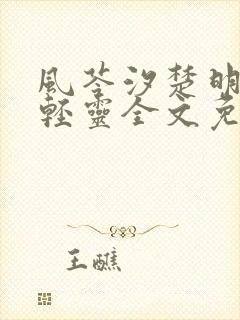 風苓汐楚明
輕靈全文免
王醮